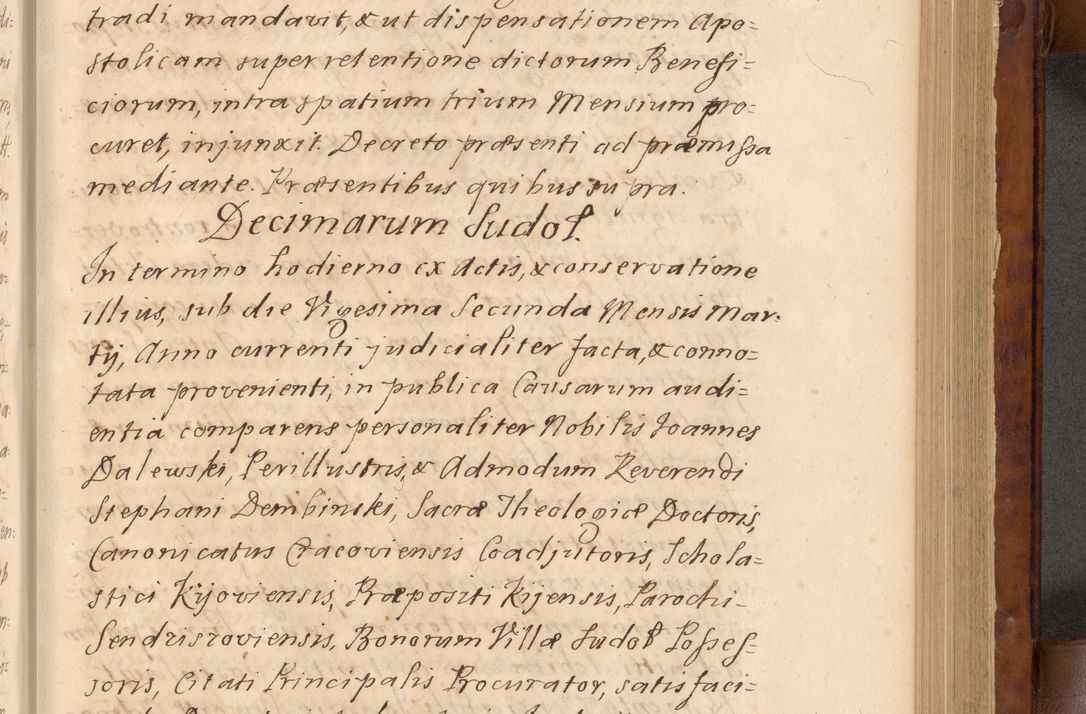 tradi mandavit, & ut dispensationem Apo=
stolicam super retentione dictorum Benefi=
ciorum, intra spatium trium Mensium pro=
curet, injunxit. Decreto præsenti ad præmissa
mediante. Præsentibus quibus supra.
Decimarum Sudoł.
In termino hodierno ex Actis, & conservatione
illius, sub die Vigesima Secunda Mensis Mar=
tij, Anno currenti judicialiter facta, & conno=
tata provenienti, in publica Causarum audi=
entia comparens personaliter Nobilis Joannes
Dalewski, Perillustris, & Admodum Reverendi
Stephani Dembinski, Sacræ Theologiæ Doctoris,
Canonicatus Cracoviensis Coadjutoris, Schola=
stici Kijoviensis, Præpositi Kijensis, Parochi
Sendzisroviensis, Bonorum Villæ Sudoł Posses=
soris, Citati Principalis Procurator, satisfaci=